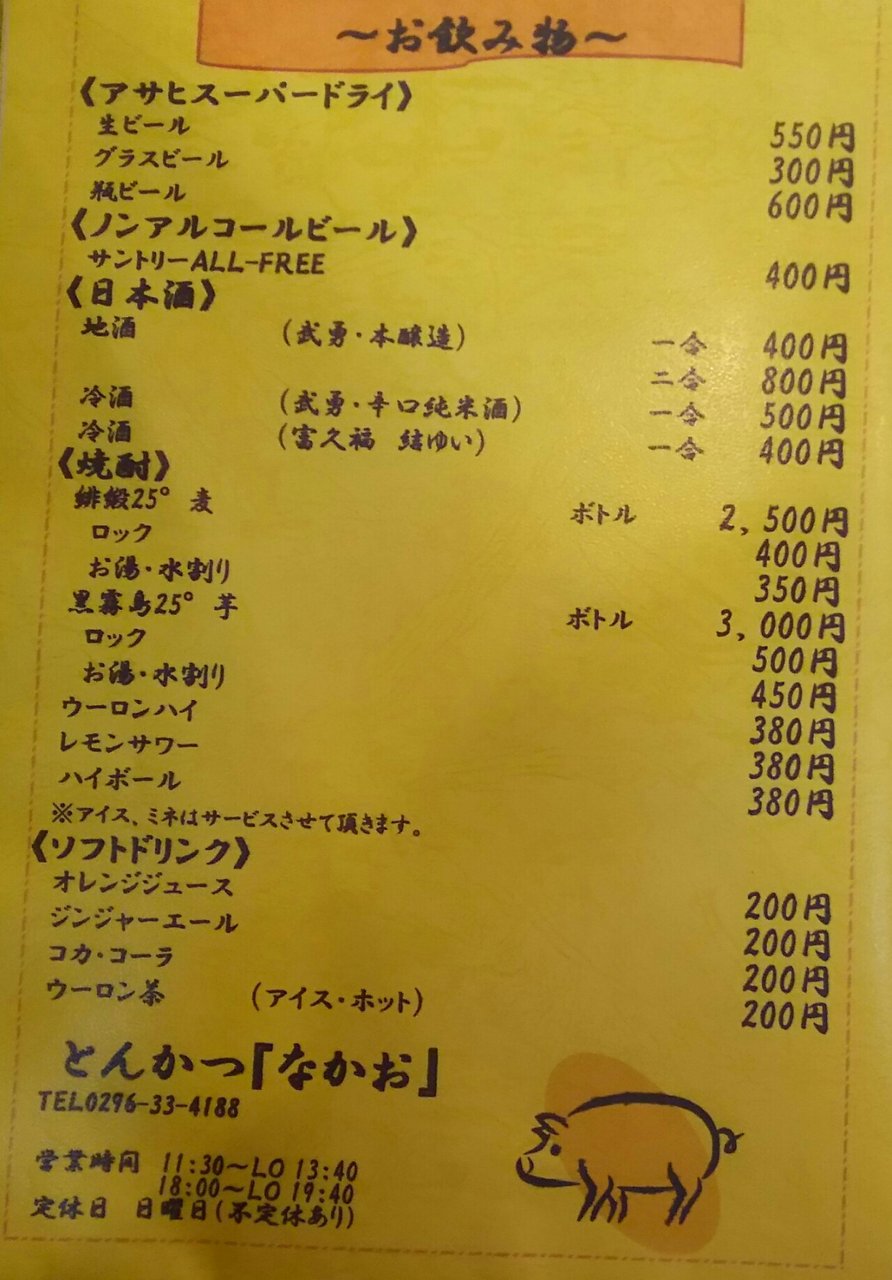 ～お飲み物～
《アサヒスーパードライ》
生ビール 550円
グラスビール 300円
瓶ビール 600円
《ノンアルコールビール》
サントリーALL-FREE 400円
《日本酒》
地酒 (武勇・本醸造) 一合 400円
二合 800円
冷酒 (武勇・辛口純米酒) 一合 500円
冷酒 (富久福 結ゆい) 一合 400円
《焼酎》
緋緞25° 麦 ボトル 2,500円
ロック 400円
お湯・水割り 350円
黒霧島25° 芋 ボトル 3,000円
ロック 500円
お湯・水割り 450円
ウーロンハイ 380円
レモンサワー 380円
ハイボール 380円
※アイス、ミネはサービスさせて頂きます。
《ソフトドリンク》
オレンジジュース 200円
ジンジャーエール 200円
コカ・コーラ 200円
ウーロン茶 (アイス・ホット) 200円
とんかつ「なかお」
TEL0296-33-4188
営業時間 11:30～LO 13:40
18:00～LO 19:40
定休日 日曜日(不定休あり)